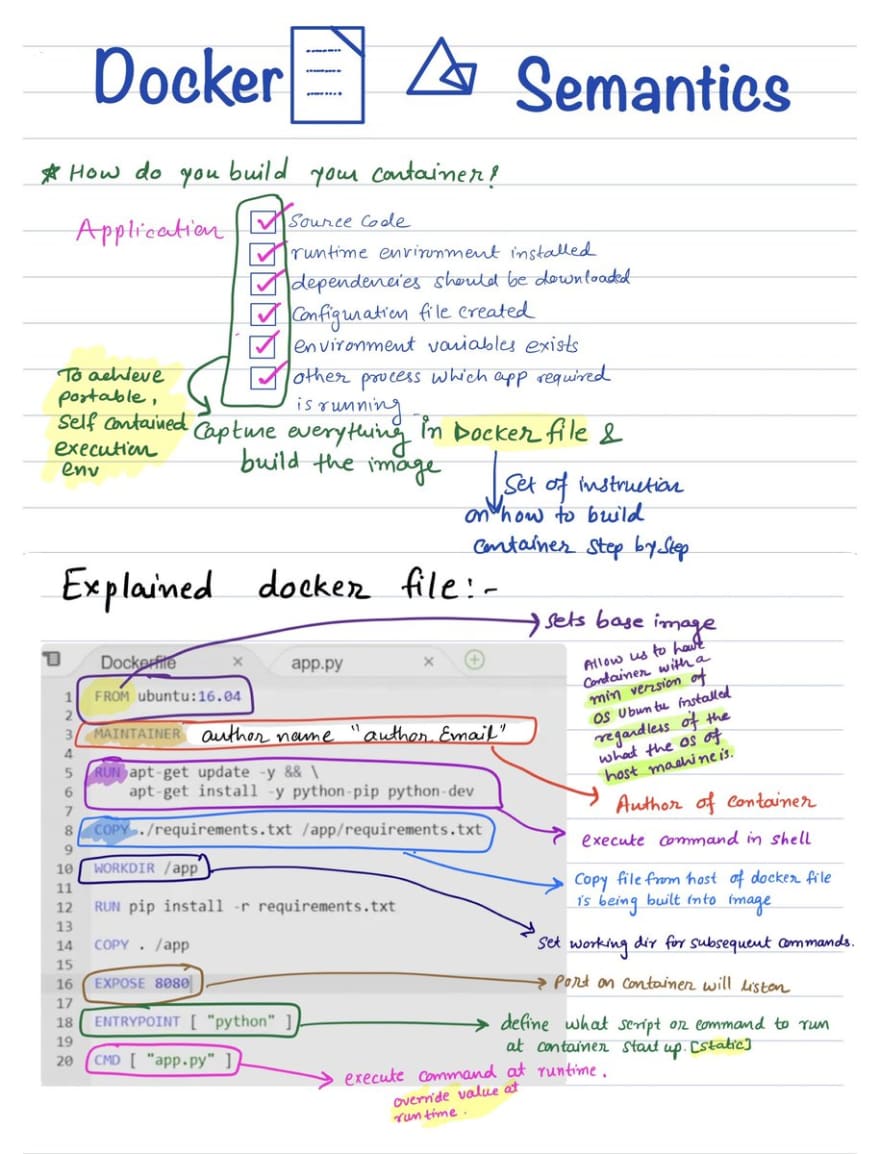 Docker Semantics
* How do you build your container?
Application
Source code
runtime environment installed
dependencies should be downloaded
Configuration file created
environment variables exists
other process which app required
is running
To achieve
portable,
Self contained
execution
env
Capture everything in Docker file &
build the image
Set of instruction
on how to build
container step by step
Explained docker file:-
Sets base image
Allow us to have
container with a
min version of
OS Ubuntu installed
regardless of the
what the OS of
host machine is.
Dockerfile × app.py ×
1 FROM ubuntu:16.04
2
3 MAINTAINER author name "author Email"
4
5 RUN apt-get update -y && \
6 apt-get install -y python-pip python-dev
7
8 COPY ./requirements.txt /app/requirements.txt
9
10 WORKDIR /app
11
12 RUN pip install -r requirements.txt
13
14 COPY . /app
15
16 EXPOSE 8080
17
18 ENTRYPOINT [ "python" ]
19
20 CMD [ "app.py" ]
Author of container
execute command in shell
Copy file from host of docker file
is being built into image
Set working dir for subsequent commands.
Port on container will listen
define what script or command to run
at container start up. [static]
execute command at runtime.
override value at
runtime.